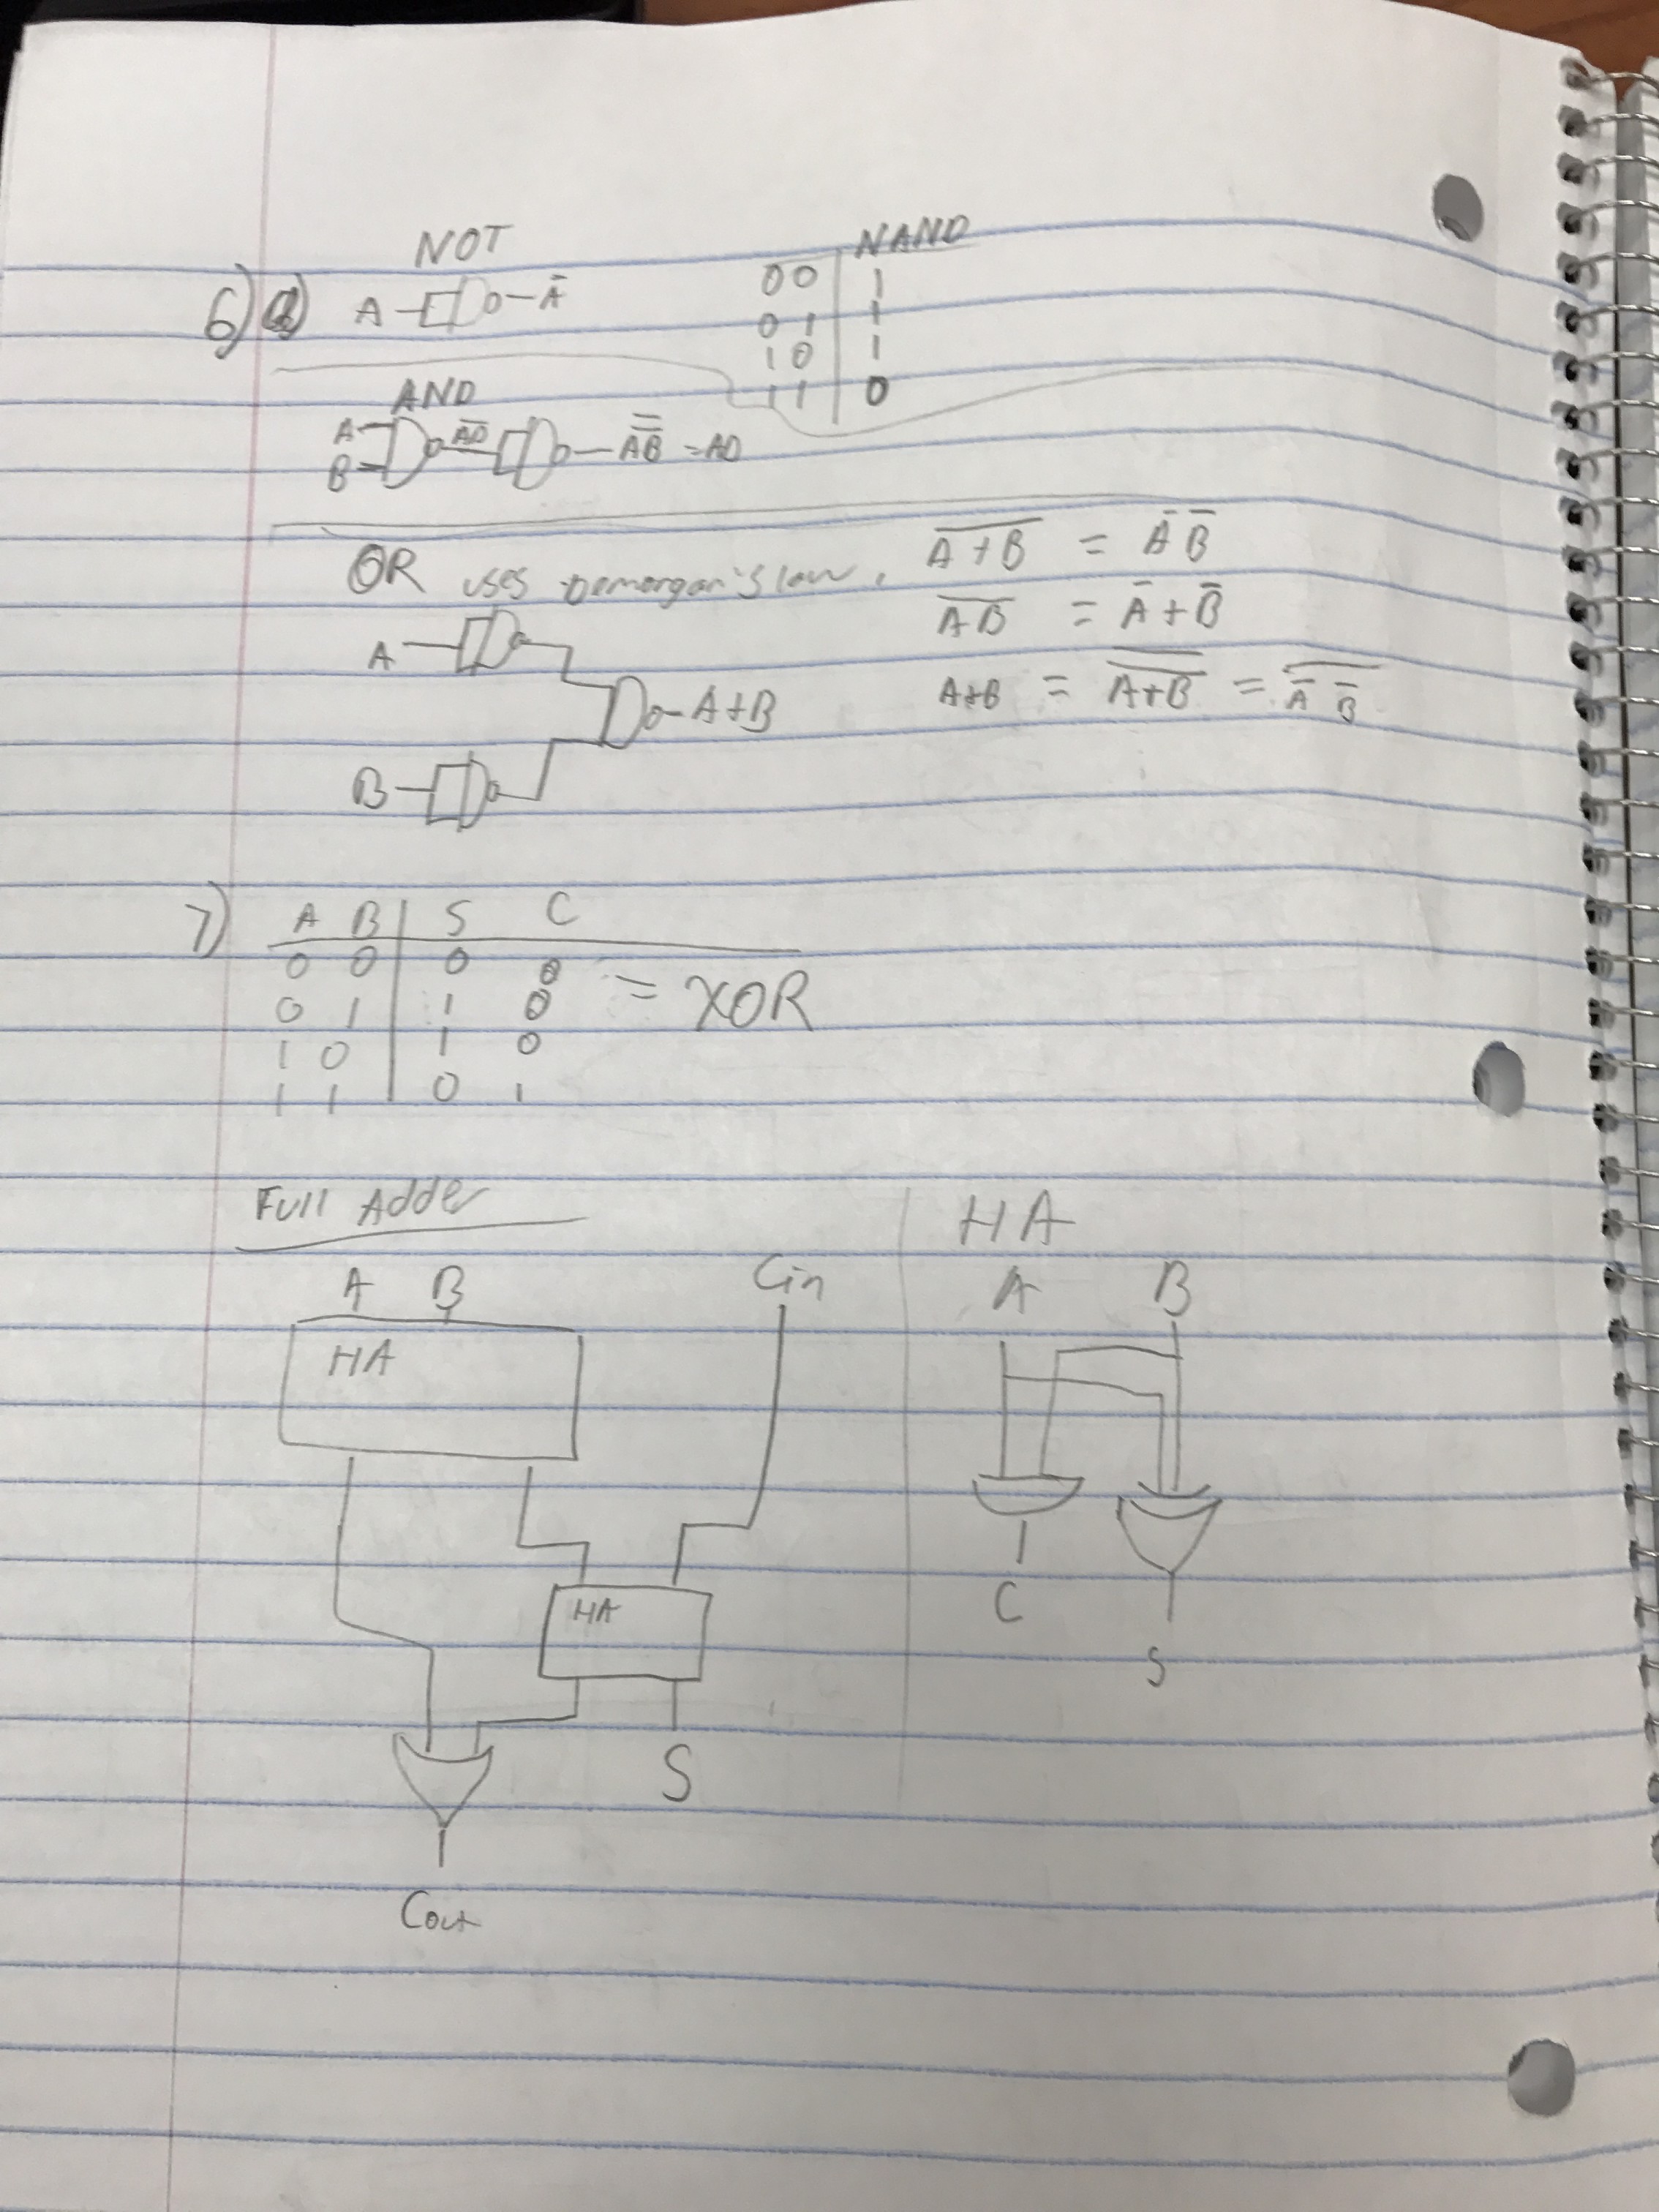 NOT
6) a) A Ā
NAND
0 0 | 1
0 1 | 1
1 0 | 1
1 1 | 0
AND
A
B
A̅B̅ A̿B̿ = AB
OR uses Demorgan's law,
A̅+̅B̅ = Ā B̄
A̅B̅ = Ā + B̄
A+B = A̿+̿B̿ = \overline{Ā B̄}
A
A+B
B
7) A B | S C
0 0 | 0 0 = XOR
0 1 | 1 0
1 0 | 1 0
1 1 | 0 1
Full Adder
A B Cin
HA
HA
S
Cout
HA
A B
C
S